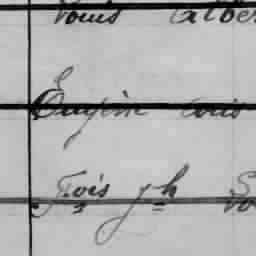 Louis Alber
Eugène Louis
Fois Jh